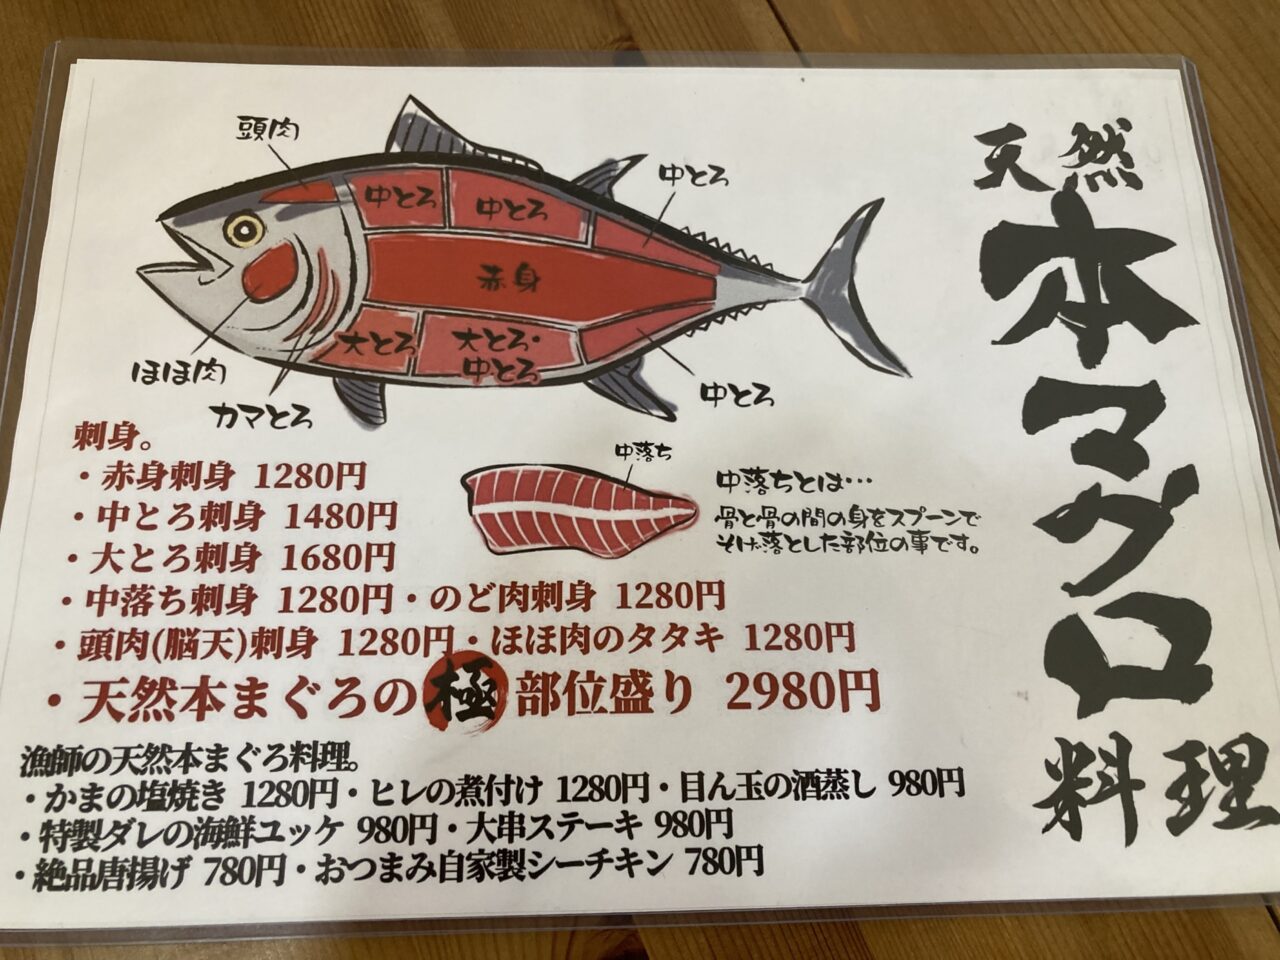 天然
本マグロ
料理
頭肉
中とろ
中とろ
中とろ
赤身
大とろ
大とろ・
中とろ
中とろ
ほほ肉
カマとろ
中落ち
中落ちとは…
骨と骨の間の身をスプーンで
そげ落とした部位の事です。
刺身。
・赤身刺身 1280円
・中とろ刺身 1480円
・大とろ刺身 1680円
・中落ち刺身 1280円・のど肉刺身 1280円
・頭肉(脳天)刺身 1280円・ほほ肉のタタキ 1280円
・天然本まぐろの極部位盛り 2980円
漁師の天然本まぐろ料理。
・かまの塩焼き 1280円・ヒレの煮付け 1280円・目ん玉の酒蒸し 980円
・特製ダレの海鮮ユッケ 980円・大串ステーキ 980円
・絶品唐揚げ 780円・おつまみ自家製シーチキン 780円